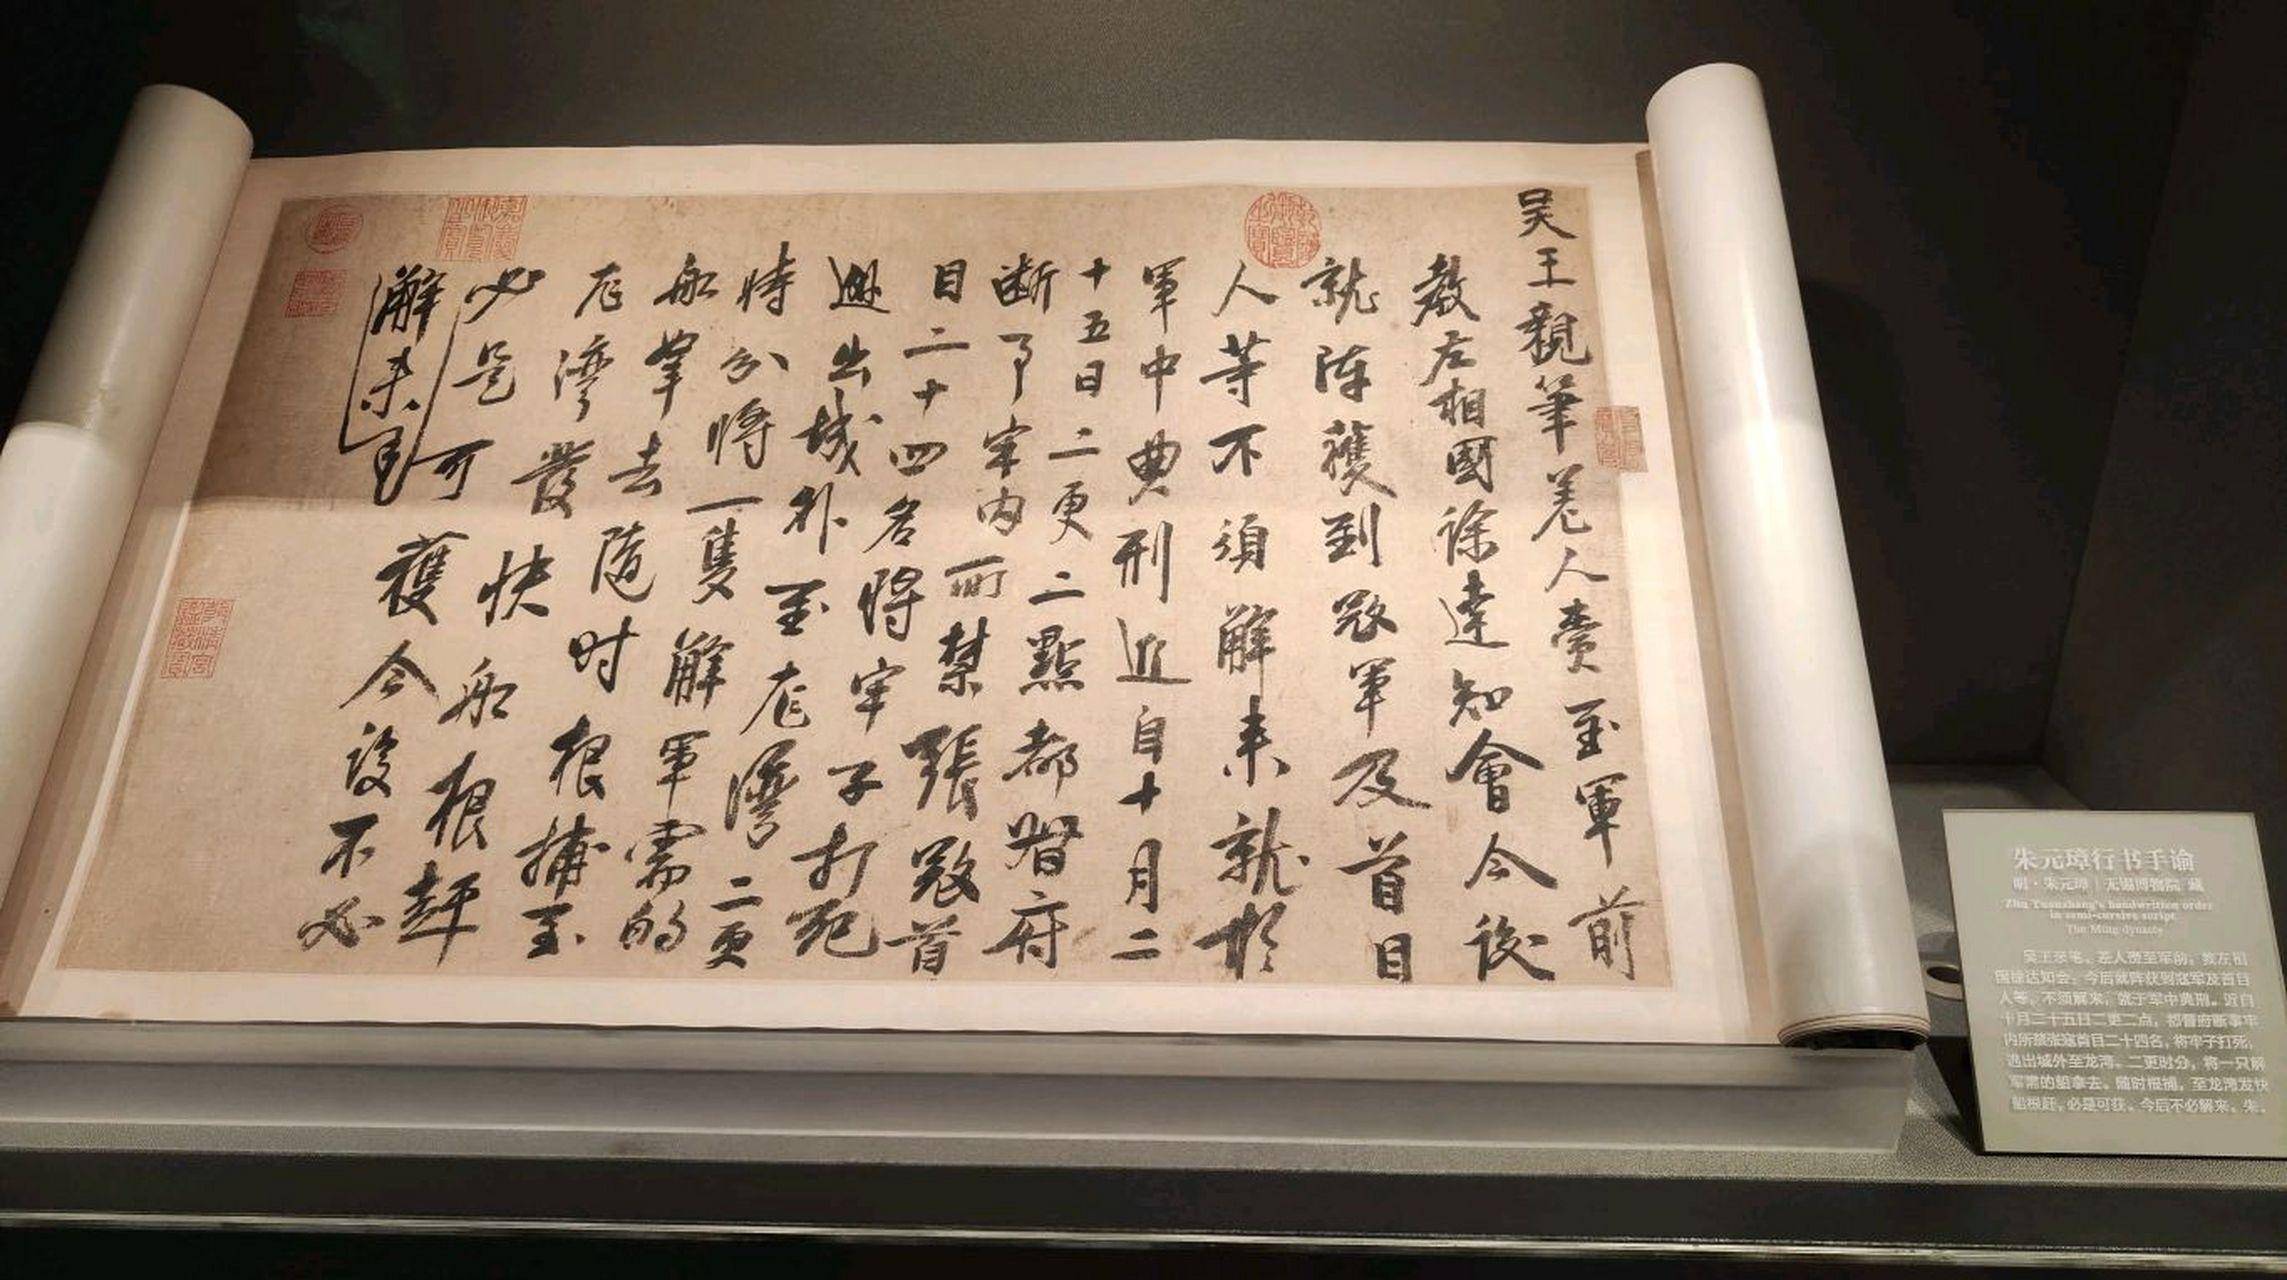 吳王親筆差人賫至軍前
教左相國徐達知會今後
就陣獲到寇軍及首目
人等不須解来就於
軍中典刑近自十月二
十五日二更二點都督府
断事牢内所禁張寇首
目二十四名將牢子打死
逃出城外至龙灣二更
時分將一隻解軍需的
船拏去随时根捕至
龙灣發快船根赶
必是可獲今後不必
解来
朱元璋行书手谕
明·朱元璋｜无锡博物院 藏
Zhu Yuanzhang's handwritten order
in semi-cursive script
The Ming dynasty
吴王亲笔，差人赍至军前，教左相
国徐达知会：今后就阵获到寇军及首目
人等，不须解来，就于军中典刑。近自
十月二十五日二更二点，都督府断事牢
内所禁张寇首目二十四名，将牢子打死，
逃出城外至龙湾。二更时分，将一只解
军需的船拿去。随时根捕，至龙湾发快
船根赶，必是可获。今后不必解来。朱。